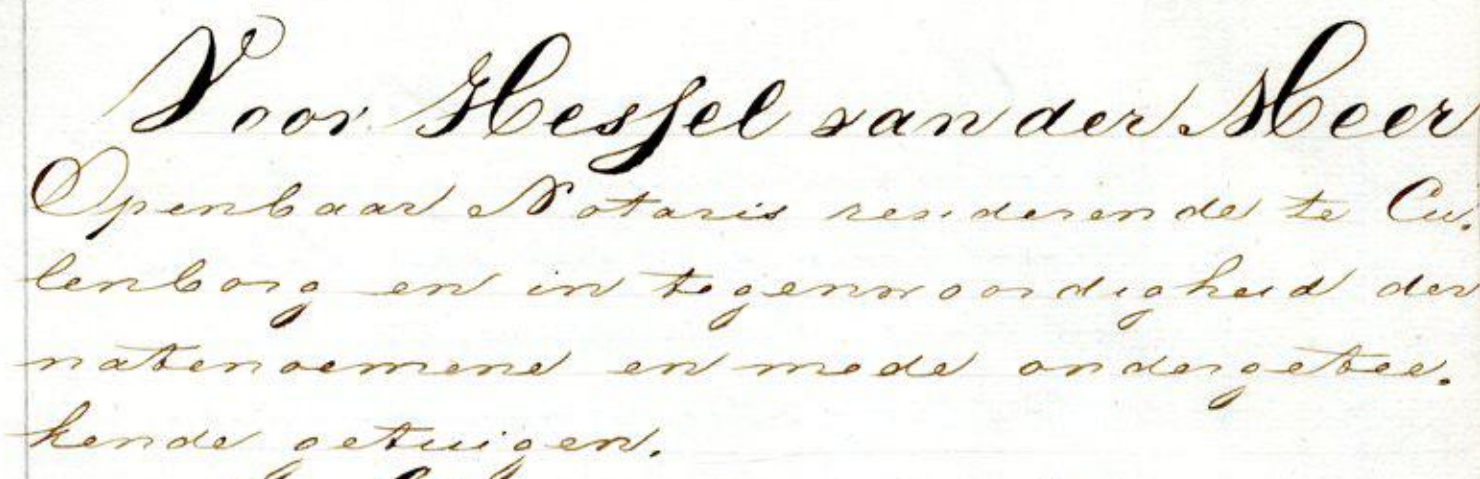 Voor Hessel van der Meer
Openbaar Notaris resideerende te Cu.
lenborg en in tegenwoordigheid der
natenoemene en mede ondergetee.
kende getuigen.